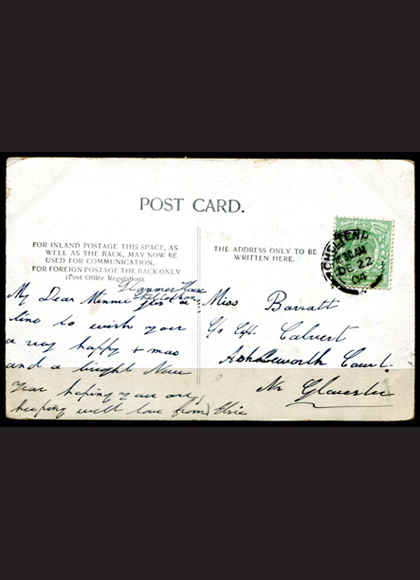 POST CARD.
FOR INLAND POSTAGE THIS SPACE, AS
WELL AS THE BACK, MAY NOW BE
USED FOR COMMUNICATION.
FOR FOREIGN POSTAGE THE BACK ONLY
(Post Office Regulation).
THE ADDRESS ONLY TO BE
WRITTEN HERE.
DE 22
04
House
My Dear Minnie Just a
line to wish you
a very happy + mas
and a bright New
Year hoping you are
keeping well love from Elsie
Miss Barratt
c/o Capt. Calvert
Ashleworth Court.
Nr Gloucester